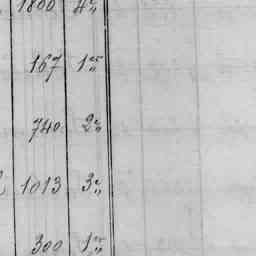 1800 4"
167 1"
740 2"
1013 3"
300 1"